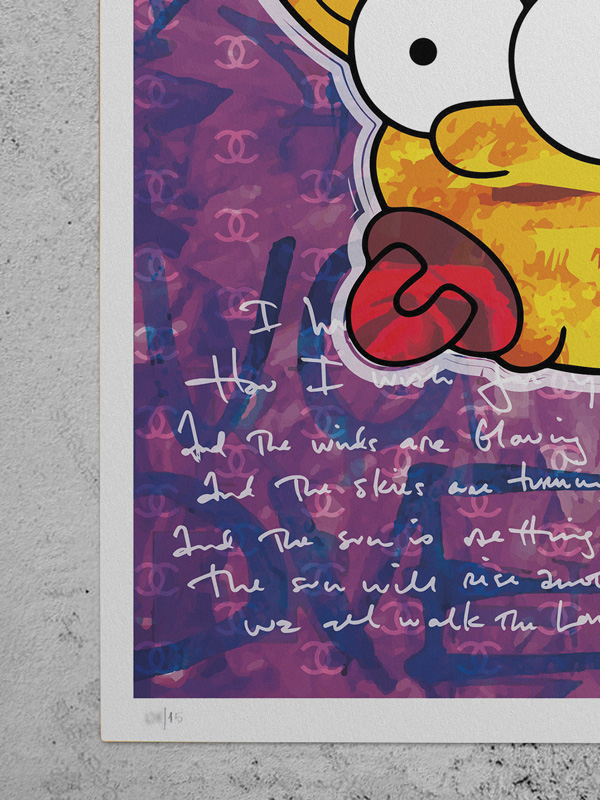 I
How I wish you
And The winds are Blowing
And The skies are turnin
And The sun is setting
The sun will rise anot
we all walk The Lon
LOVE
/15